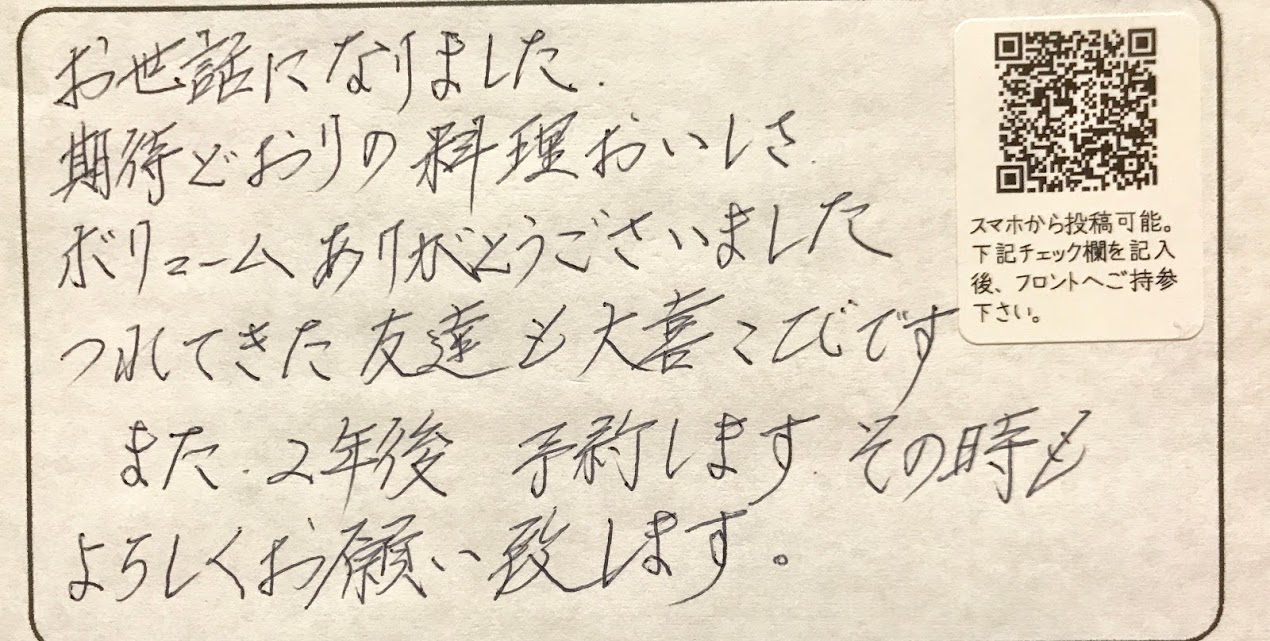 お世話になりました.
期待どおりの料理おいしさ.
ボリュームありがとうございました
つれてきた友達も大喜こびです
また.2年後 予約します.その時も
よろしくお願い致します。
スマホから投稿可能。
下記チェック欄を記入
後、フロントへご持参
下さい。